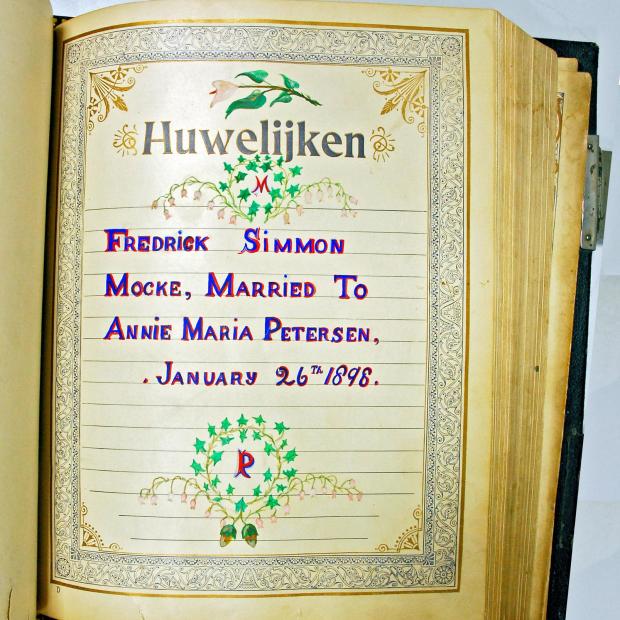 Huwelijken
M
FREDRICK SIMMON
MOCKE, MARRIED TO
ANNIE MARIA PETERSEN,
. JANUARY 26TH 1898.
P
D